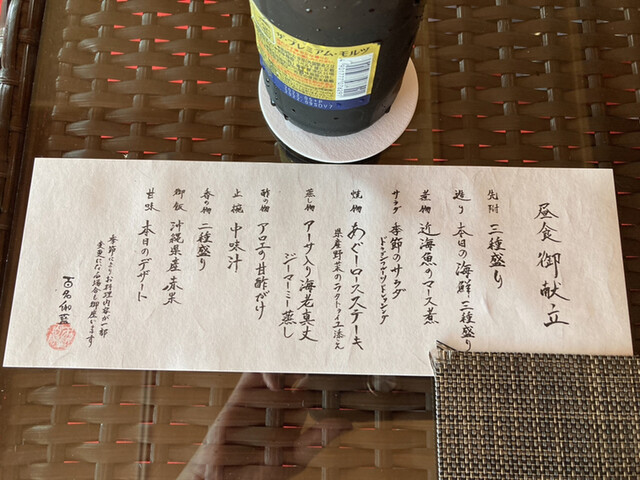 ザ・プレミアム・モルツ
昼食御献立
先附 三種盛り
造り 本日の海鮮三種盛り
煮物 近海魚のマース煮
サラダ 季節のサラダ
焼物 あぐーロースステーキ
県産野菜のラタトゥイユ添え
蒸し物 アーサ入り海老真丈
ジーマーミー蒸し
酢の物 アロエの甘酢がけ
止椀 中味汁
香の物 二種盛り
御飯 沖縄県産
甘味 本日のデザート
季節によりお料理内容が一部
変更になる場合も御座います